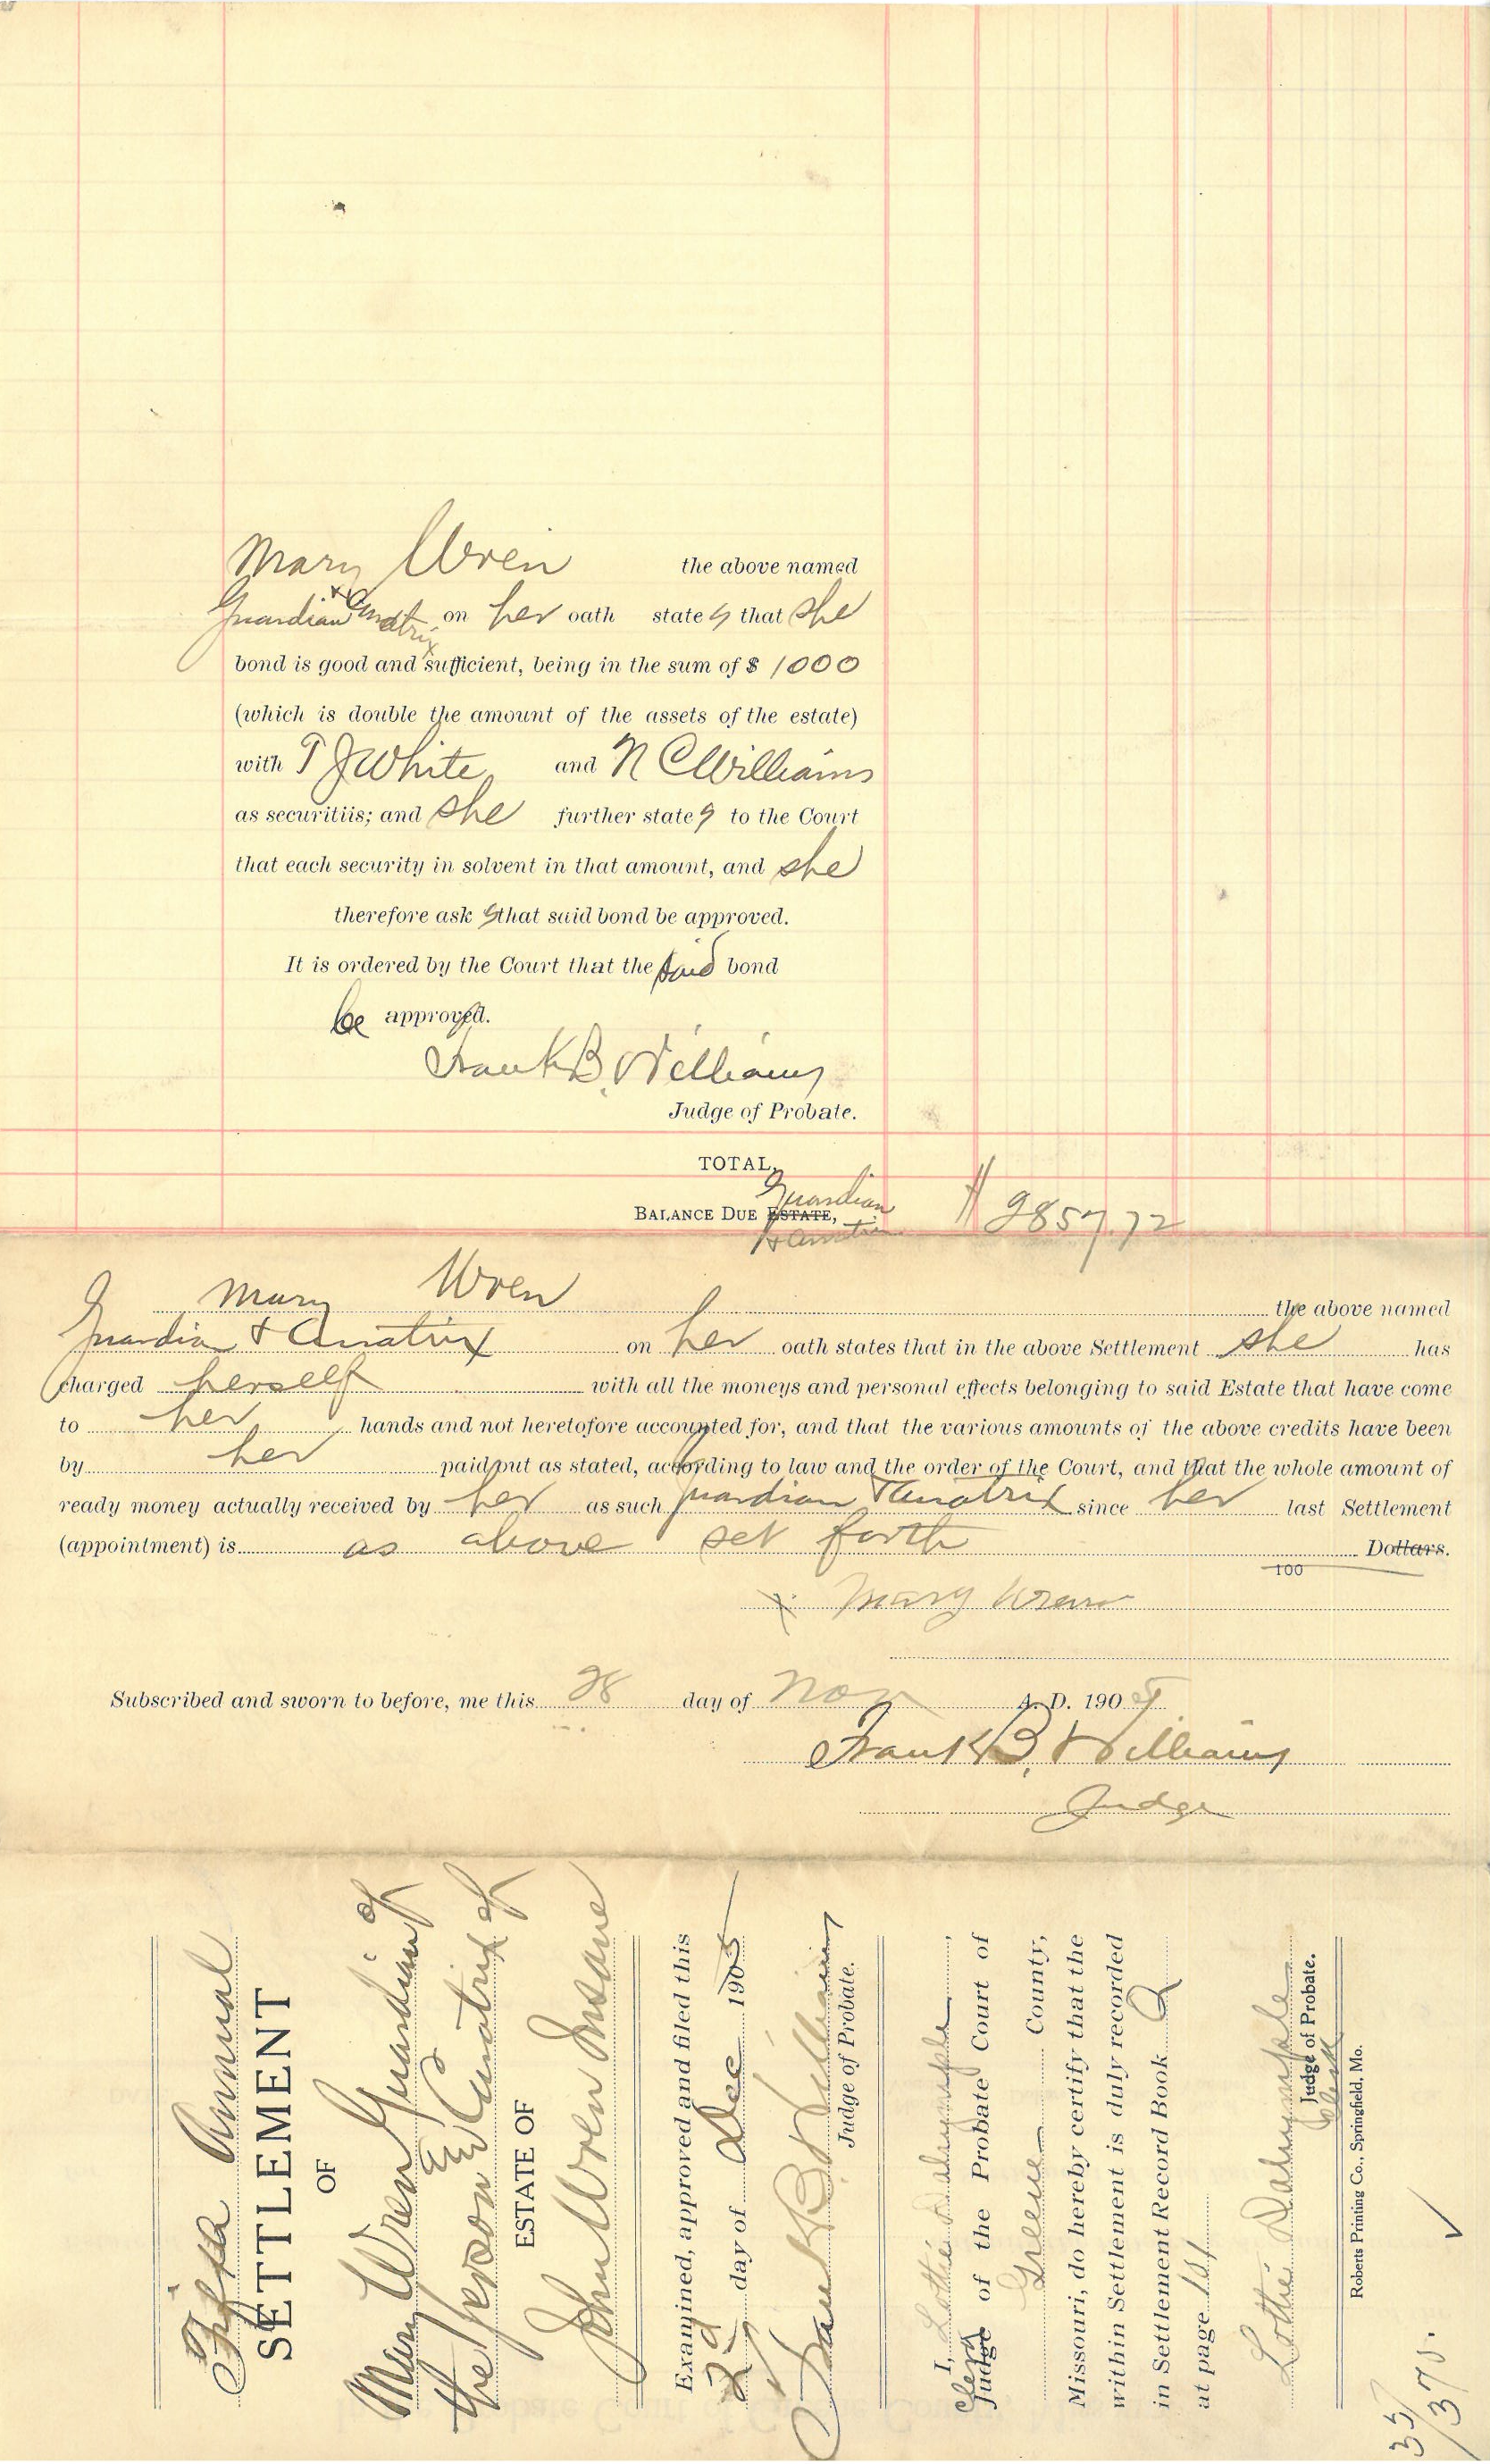 Mary Wren the above named
Guardian & Curatrix on her oath states that she
bond is good and sufficient, being in the sum of $ 1000
(which is double the amount of the assets of the estate)
with T J White and N C Williams
as securitiis; and she further states to the Court
that each security in solvent in that amount, and she
therefore asks that said bond be approved.
It is ordered by the Court that the said bond
be approved.
Frank B. Williams
Judge of Probate.
TOTAL,
BALANCE DUE ESTATE, Guardian & Curatrix $ 2857.72
Mary Wren the above named
Guardian & Curatrix on her oath states that in the above Settlement she has
charged herself with all the moneys and personal effects belonging to said Estate that have come
to her hands and not heretofore accounted for, and that the various amounts of the above credits have been
by her paid out as stated, according to law and the order of the Court, and that the whole amount of
ready money actually received by her as such guardian & Curatrix since her last Settlement
(appointment) is as above set forth Dollars.
100
x Mary Wren
Subscribed and sworn to before, me this 28 day of Nov A. D. 1905
Frank B. Williams
Judge
Fifth Annual
SETTLEMENT
OF
Mary Wren Guardian of
the person & Curatrix of
ESTATE OF
John Wren Insane
Examined, approved and filed this
2d day of Dec 1905
Frank B Williams
Judge of Probate.
I, Lottie Dalrymple,
Clerk Judge of the Probate Court of
Greene County,
Missouri, do hereby certify that the
within Settlement is duly recorded
in Settlement Record Book Q
at page 101
Lottie Dalrymple
Judge of Probate.
Clerk
Roberts Printing Co., Springfield, Mo.